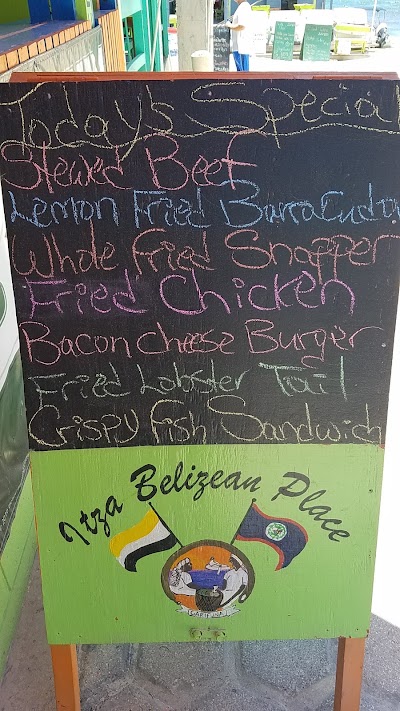 Today's Special
Stewed Beef
Lemon Fried Barracuda
Whole Fried Snapper
Fried Chicken
Bacon cheese Burger
Fried Lobster Tail
Crispy Fish Sandwich
Itza Belizean Place